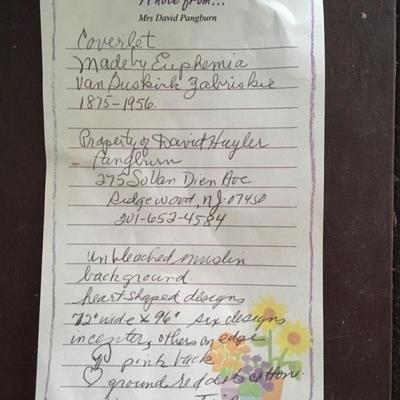 A note from...
Mrs David Pangburn
Coverlet
Made by Euphemia
Van Buskirk Zabriskie
1875-1956.
Property of David Huyler
Pangburn
275 So Van Dien Ave
Ridgewood, NJ. 07450
201-652-4584
unbleached muslin
background
heart shaped designs
72" wide x 96" six designs
in center, others on edge
pink back
ground red dots cotton